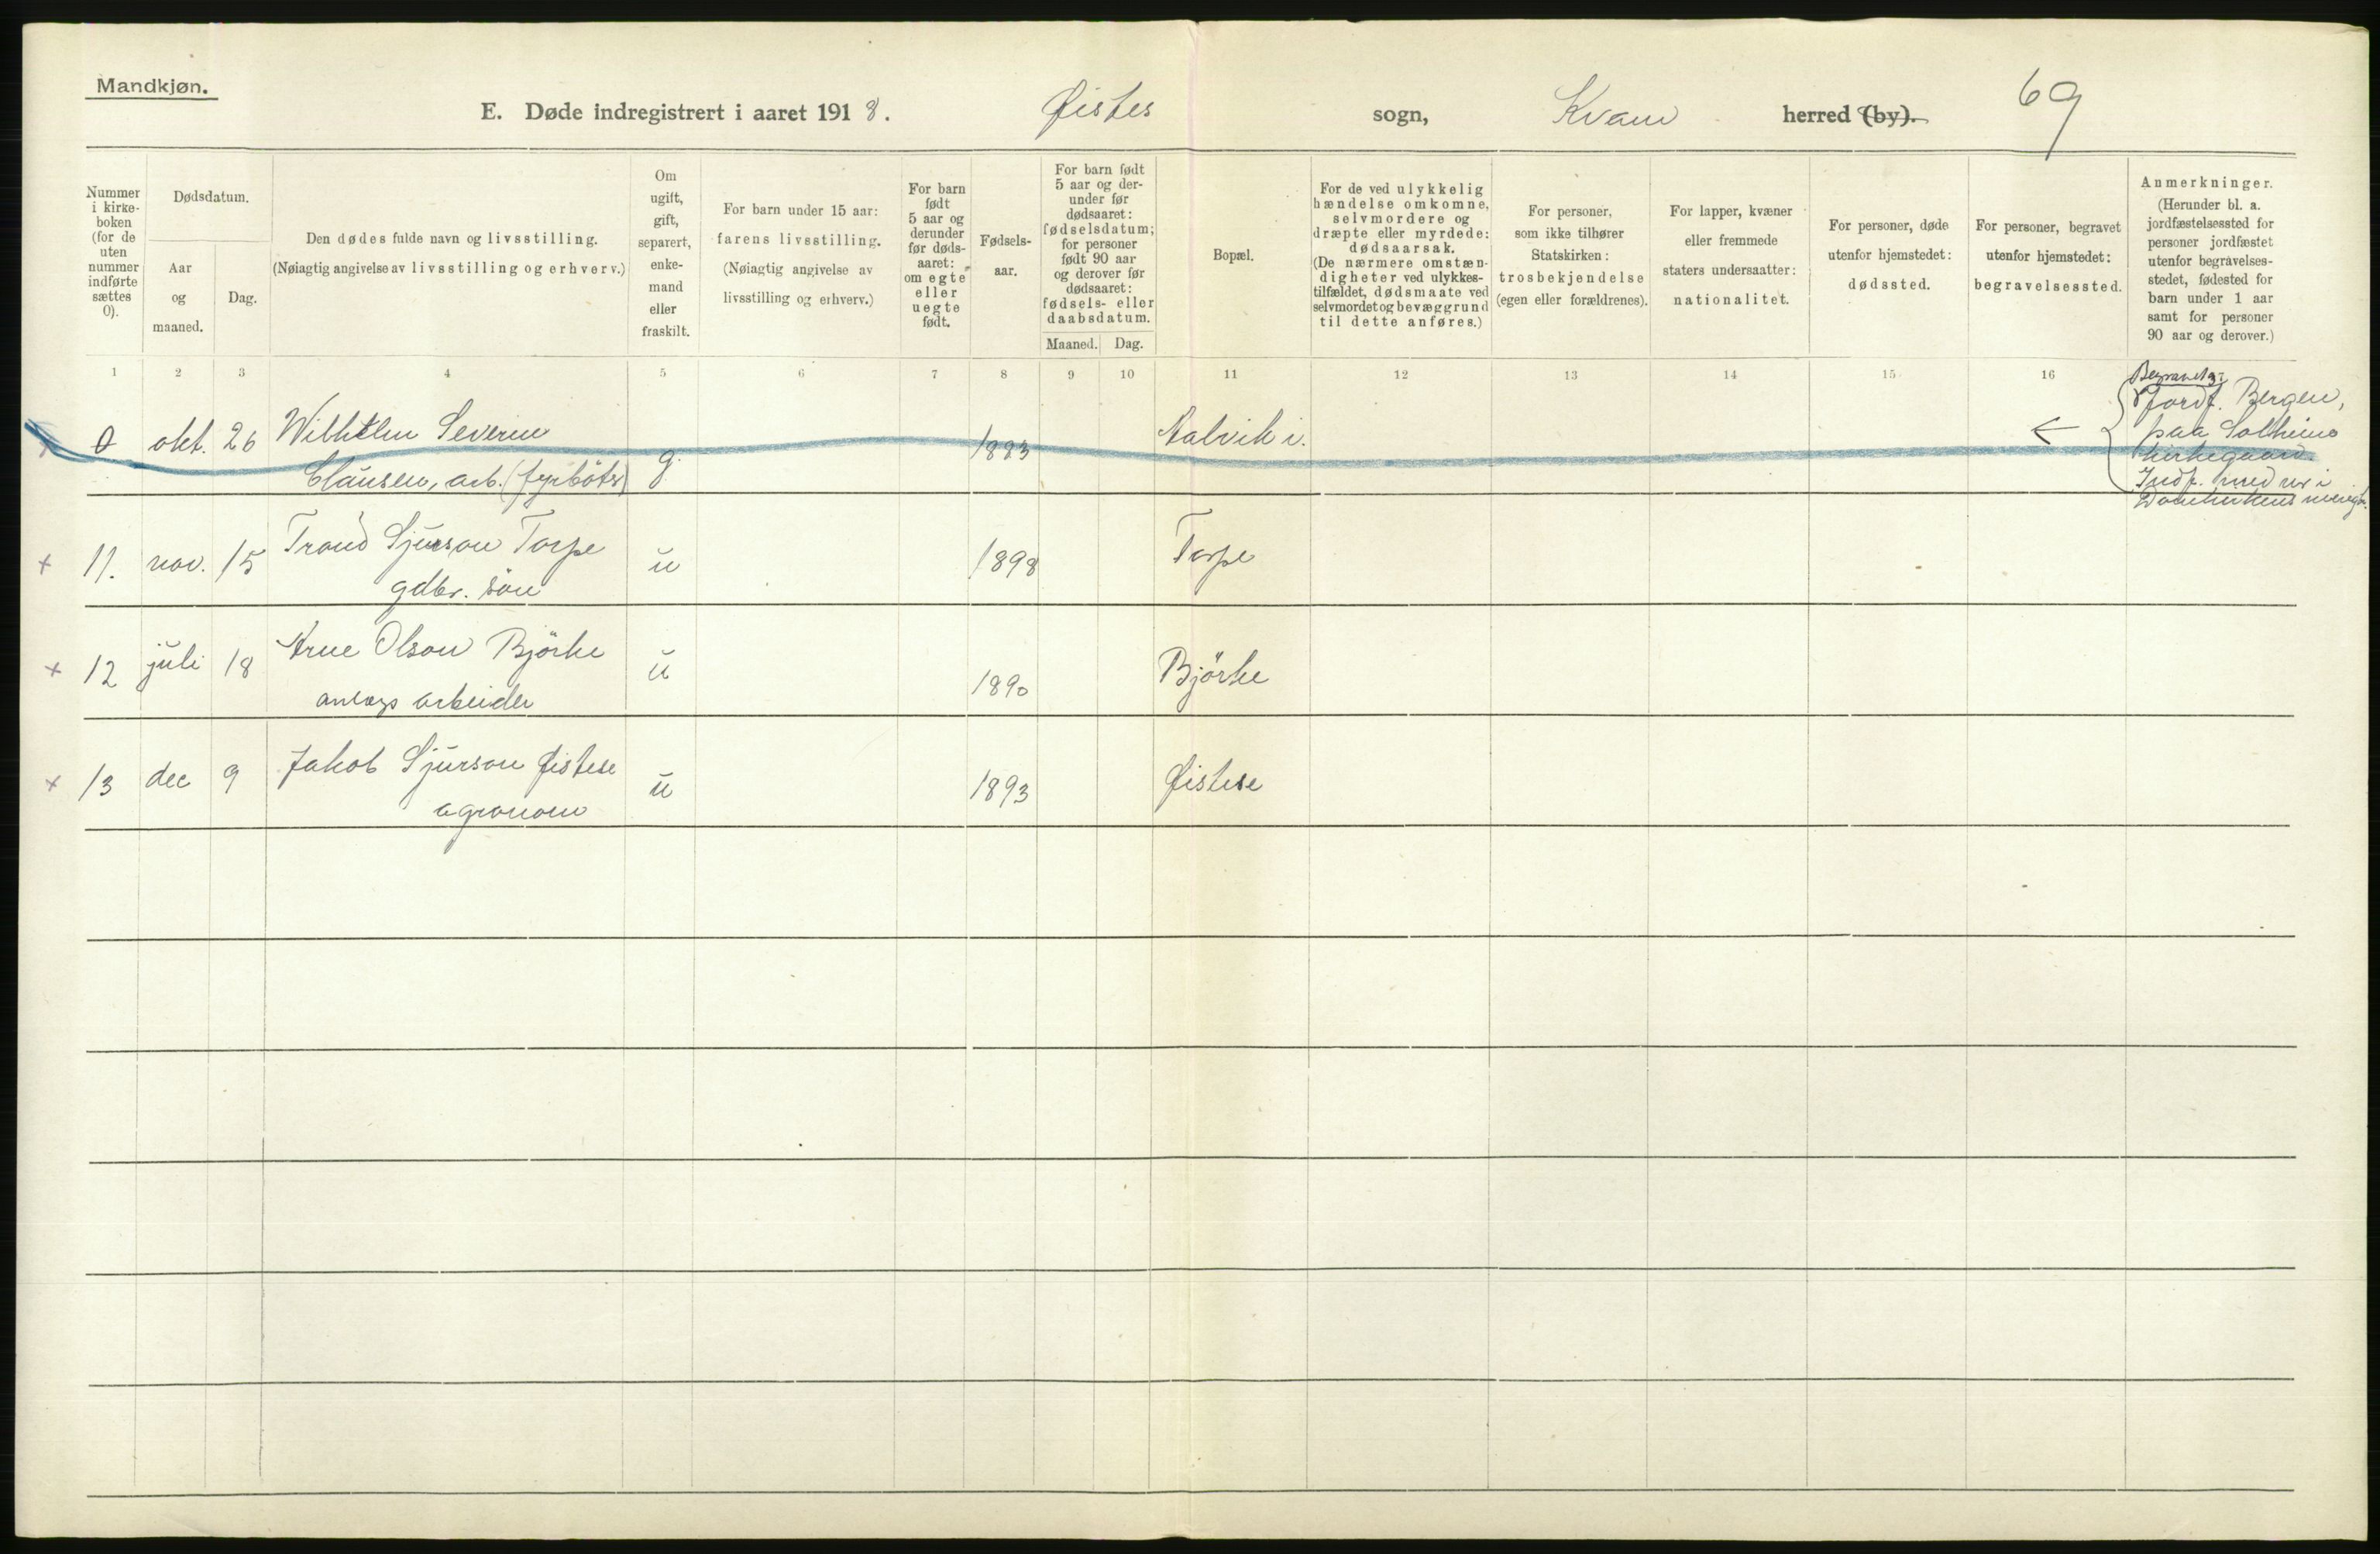 Mandkjøn.
E. Døde indregistrert i aaret 1918. Øistes sogn, Kvam herred (by). 69
Nummer i kirke-boken (for de uten nummer indførte sættes 0).
Dødsdatum.
Aar og maaned.
Dag.
Den dødes fulde navn og livsstilling.
(Nøiagtig angivelse av livsstilling og erhverv.)
Om ugift, gift, separert, enke-mand eller fraskilt.
For barn under 15 aar:
farens livsstilling.
(Nøiagtig angivelse av
livsstilling og erhverv.)
For barn født 5 aar og derunder før døds-aaret: om egte eller uegte født.
Fødsels-aar.
For barn født 5 aar og der-under før dødsaaret: fødselsdatum; for personer født 90 aar og derover før dødsaaret: fødsels- eller daabsdatum.
Maaned. Dag.
Bopæl.
For de ved ulykkelig hændelse omkomne, selvmordere og dræpte eller myrdede: dødsaarsak.
(De nærmere omstæn-digheter ved ulykkes-tilfældet, dødsmaate ved selvmordet og bevæggrund til dette anføres.)
For personer, som ikke tilhører Statskirken: trosbekjendelse (egen eller forældrenes).
For lapper, kvæner eller fremmede staters undersaatter: nationalitet.
For personer, døde utenfor hjemstedet: dødssted.
For personer, begravet utenfor hjemstedet: begravelsessted.
Anmerkninger.
(Herunder bl. a. jordfæstelsessted for personer jordfæstet utenfor begravelses-stedet, fødested for barn under 1 aar samt for personer 90 aar og derover.)
1 2 3 4 5 6 7 8 9 10 11 12 13 14 15 16
0 okt. 26 Wilhelm Severin
Clausen, arb. (fyrböter) g. 1883 Aalvik i.
Jordf. Bergen,
paa Solheims
kirkegaard.
Indf. med nr i
Domkirkens
+ 11. nov. 15 Trond Sjurson Torpe
gdbr. sön u 1898 Torpe
+ 12 juli 18 Arne Olson Björke
anlægs arbeider u 1890 Björke
+ 13 dec 9 Jakob Sjurson Øistese
agronom u 1893 Øistese